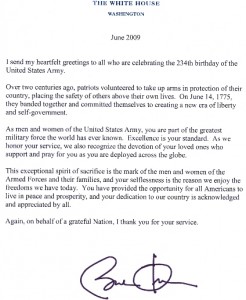 THE WHITE HOUSE
WASHINGTON
June 2009
I send my heartfelt greetings to all who are celebrating the 234th birthday of the
United States Army.
Over two centuries ago, patriots volunteered to take up arms in protection of their
country, placing the safety of others above their own lives. On June 14, 1775,
they banded together and committed themselves to creating a new era of liberty
and self-government.
As men and women of the United States Army, you are part of the greatest
military force the world has ever known. Excellence is your standard. As we
honor your service, we also recognize the devotion of your loved ones who
support and pray for you as you are deployed across the globe.
This exceptional spirit of sacrifice is the mark of the men and women of the
Armed Forces and their families, and your selflessness is the reason we enjoy the
freedoms we have today. You have provided the opportunity for all Americans to
live in peace and prosperity, and your dedication to our country is acknowledged
and appreciated by all.
Again, on behalf of a grateful Nation, I thank you for your service.